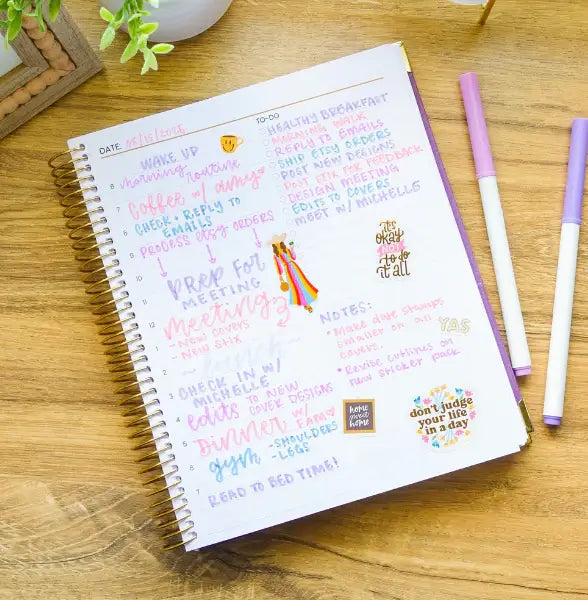 DATE: 05/15/2025
TO-DO
WAKE UP
morning routine
coffee w/ amy
CHECK + REPLY TO
EMAILS
PROCESS ETSY ORDERS
PREP FOR
MEETING
meeting
- NEW COVERS
- NEW STIX
~lunch~
CHECK IN W/
MICHELLE
edits TO NEW
COVER DESIGNS
DINNER w/
FAM
gym - SHOULDERS
- LEGS
READ TO BED TIME!
HEALTHY BREAKFAST
MORNING WALK
REPLY TO EMAILS
SHIP ETSY ORDERS
POST NEW DESIGNS
POST FOR FEEDBACK
DESIGN MEETING
EDITS TO COVERS
MEET W/ MICHELLE
it's
okay
not
to do
it all
NOTES:
* Make date stamps
smaller on all
covers.
* Revise cutlines on
new sticker pack
YAS
home
sweet
home
don't judge
your life
in a day
6
7
8
9
10
11
12
1
2
3
4
5
6
7